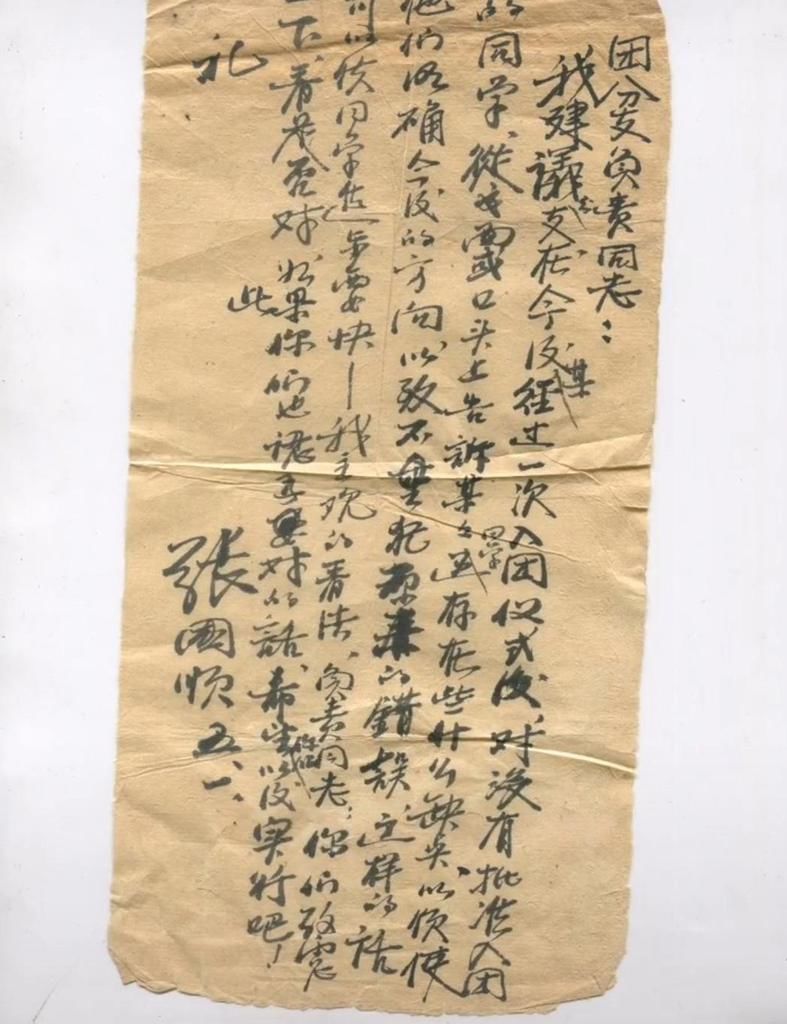 团分支负责同志：
我建議支在今后某經过一次入团仪式后，对没有批准入团
的同学、從书面或口头上告訴某々同学还存在些什么缺失、以便使
他们明确今后的方向以致不再犯原来的錯誤这样的話
可以使同学进步要快—我主观的看法、负责同志：你们考虑
一下、看是否对、如果你们也認为对的話、希望你们以后实行吧！
此
礼
張國順 五、一、